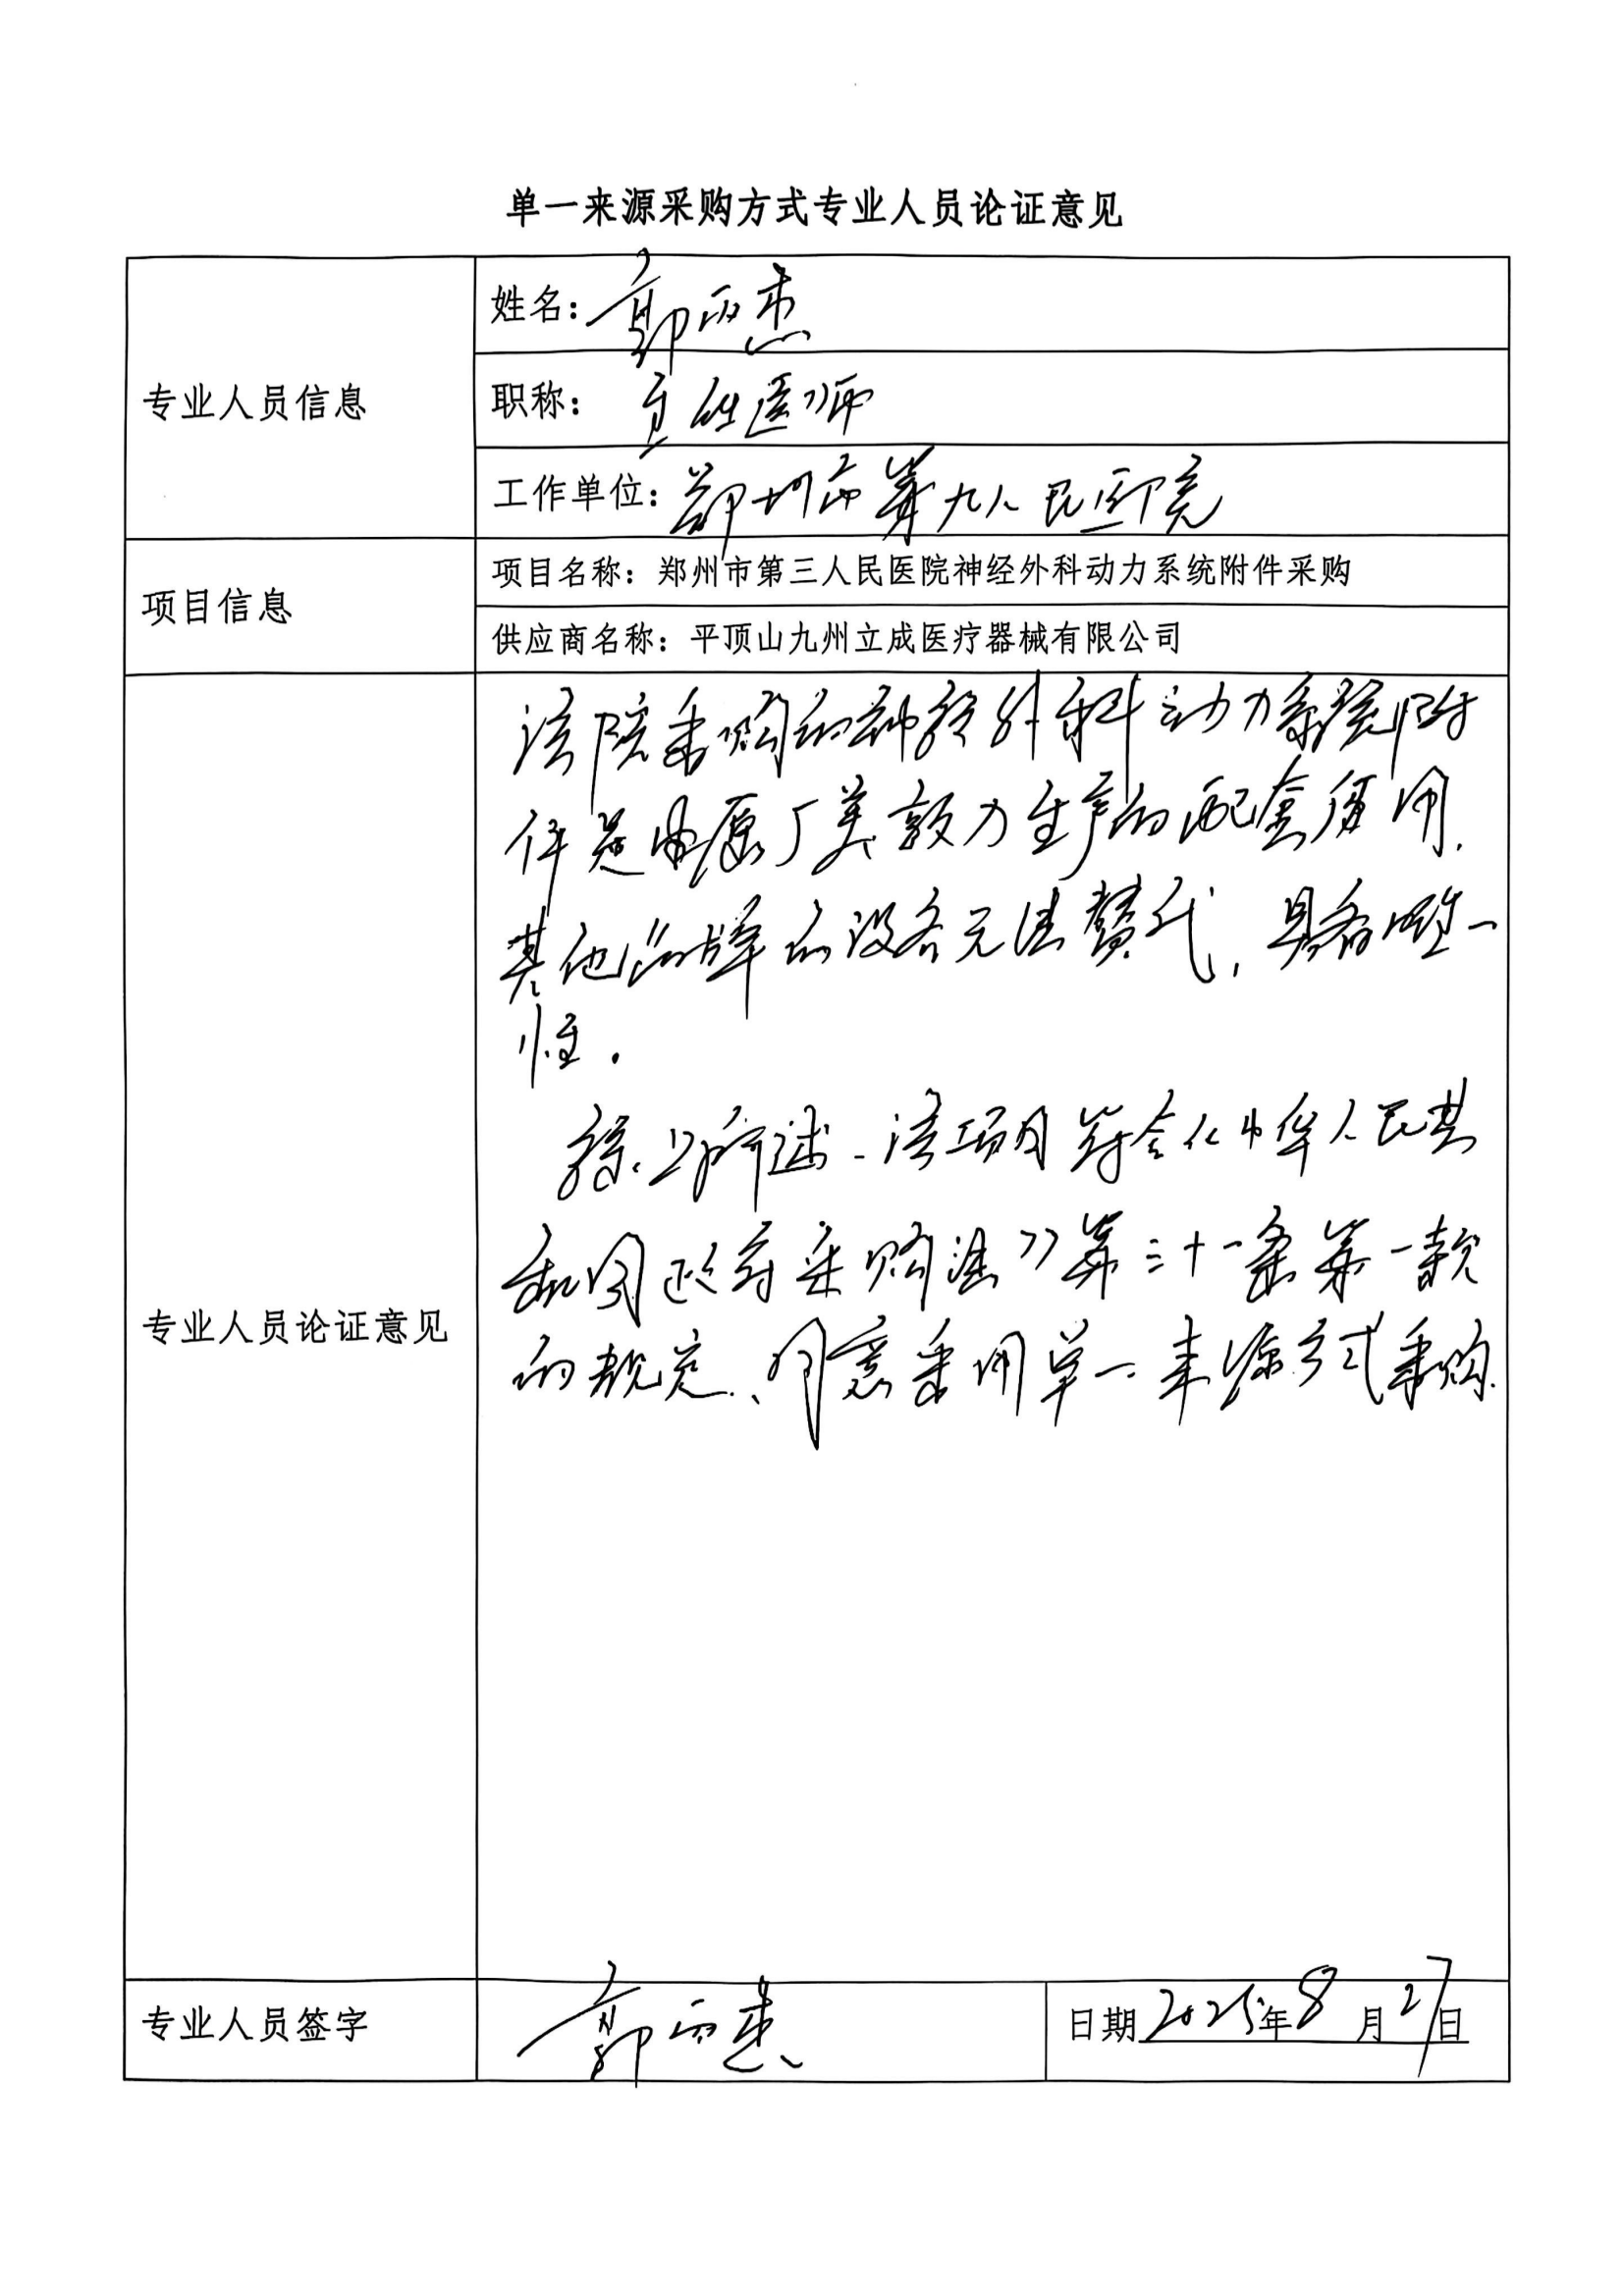 单一来源采购方式专业人员论证意见
专业人员信息
姓名：郭丙杰
职称：主任医师
工作单位：郑州市第九人民医院
项目信息
项目名称：郑州市第三人民医院神经外科动力系统附件采购
供应商名称：平顶山九州立成医疗器械有限公司
专业人员论证意见
该院采购的神经外科动力系统附
件是由原厂美敦力生产的配套使用.
其他品牌的设备无法替代，具备唯一
性.
综上所述-该项目符合《中华人民共
和国政府采购法》第三十一条第一款
的规定、同意采用单一来源方式采购.
专业人员签字
郭丙杰
日期2025年8月27日